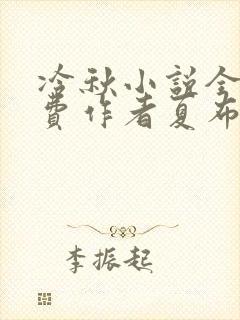 冷秋小说全
费作者夏布
李振起